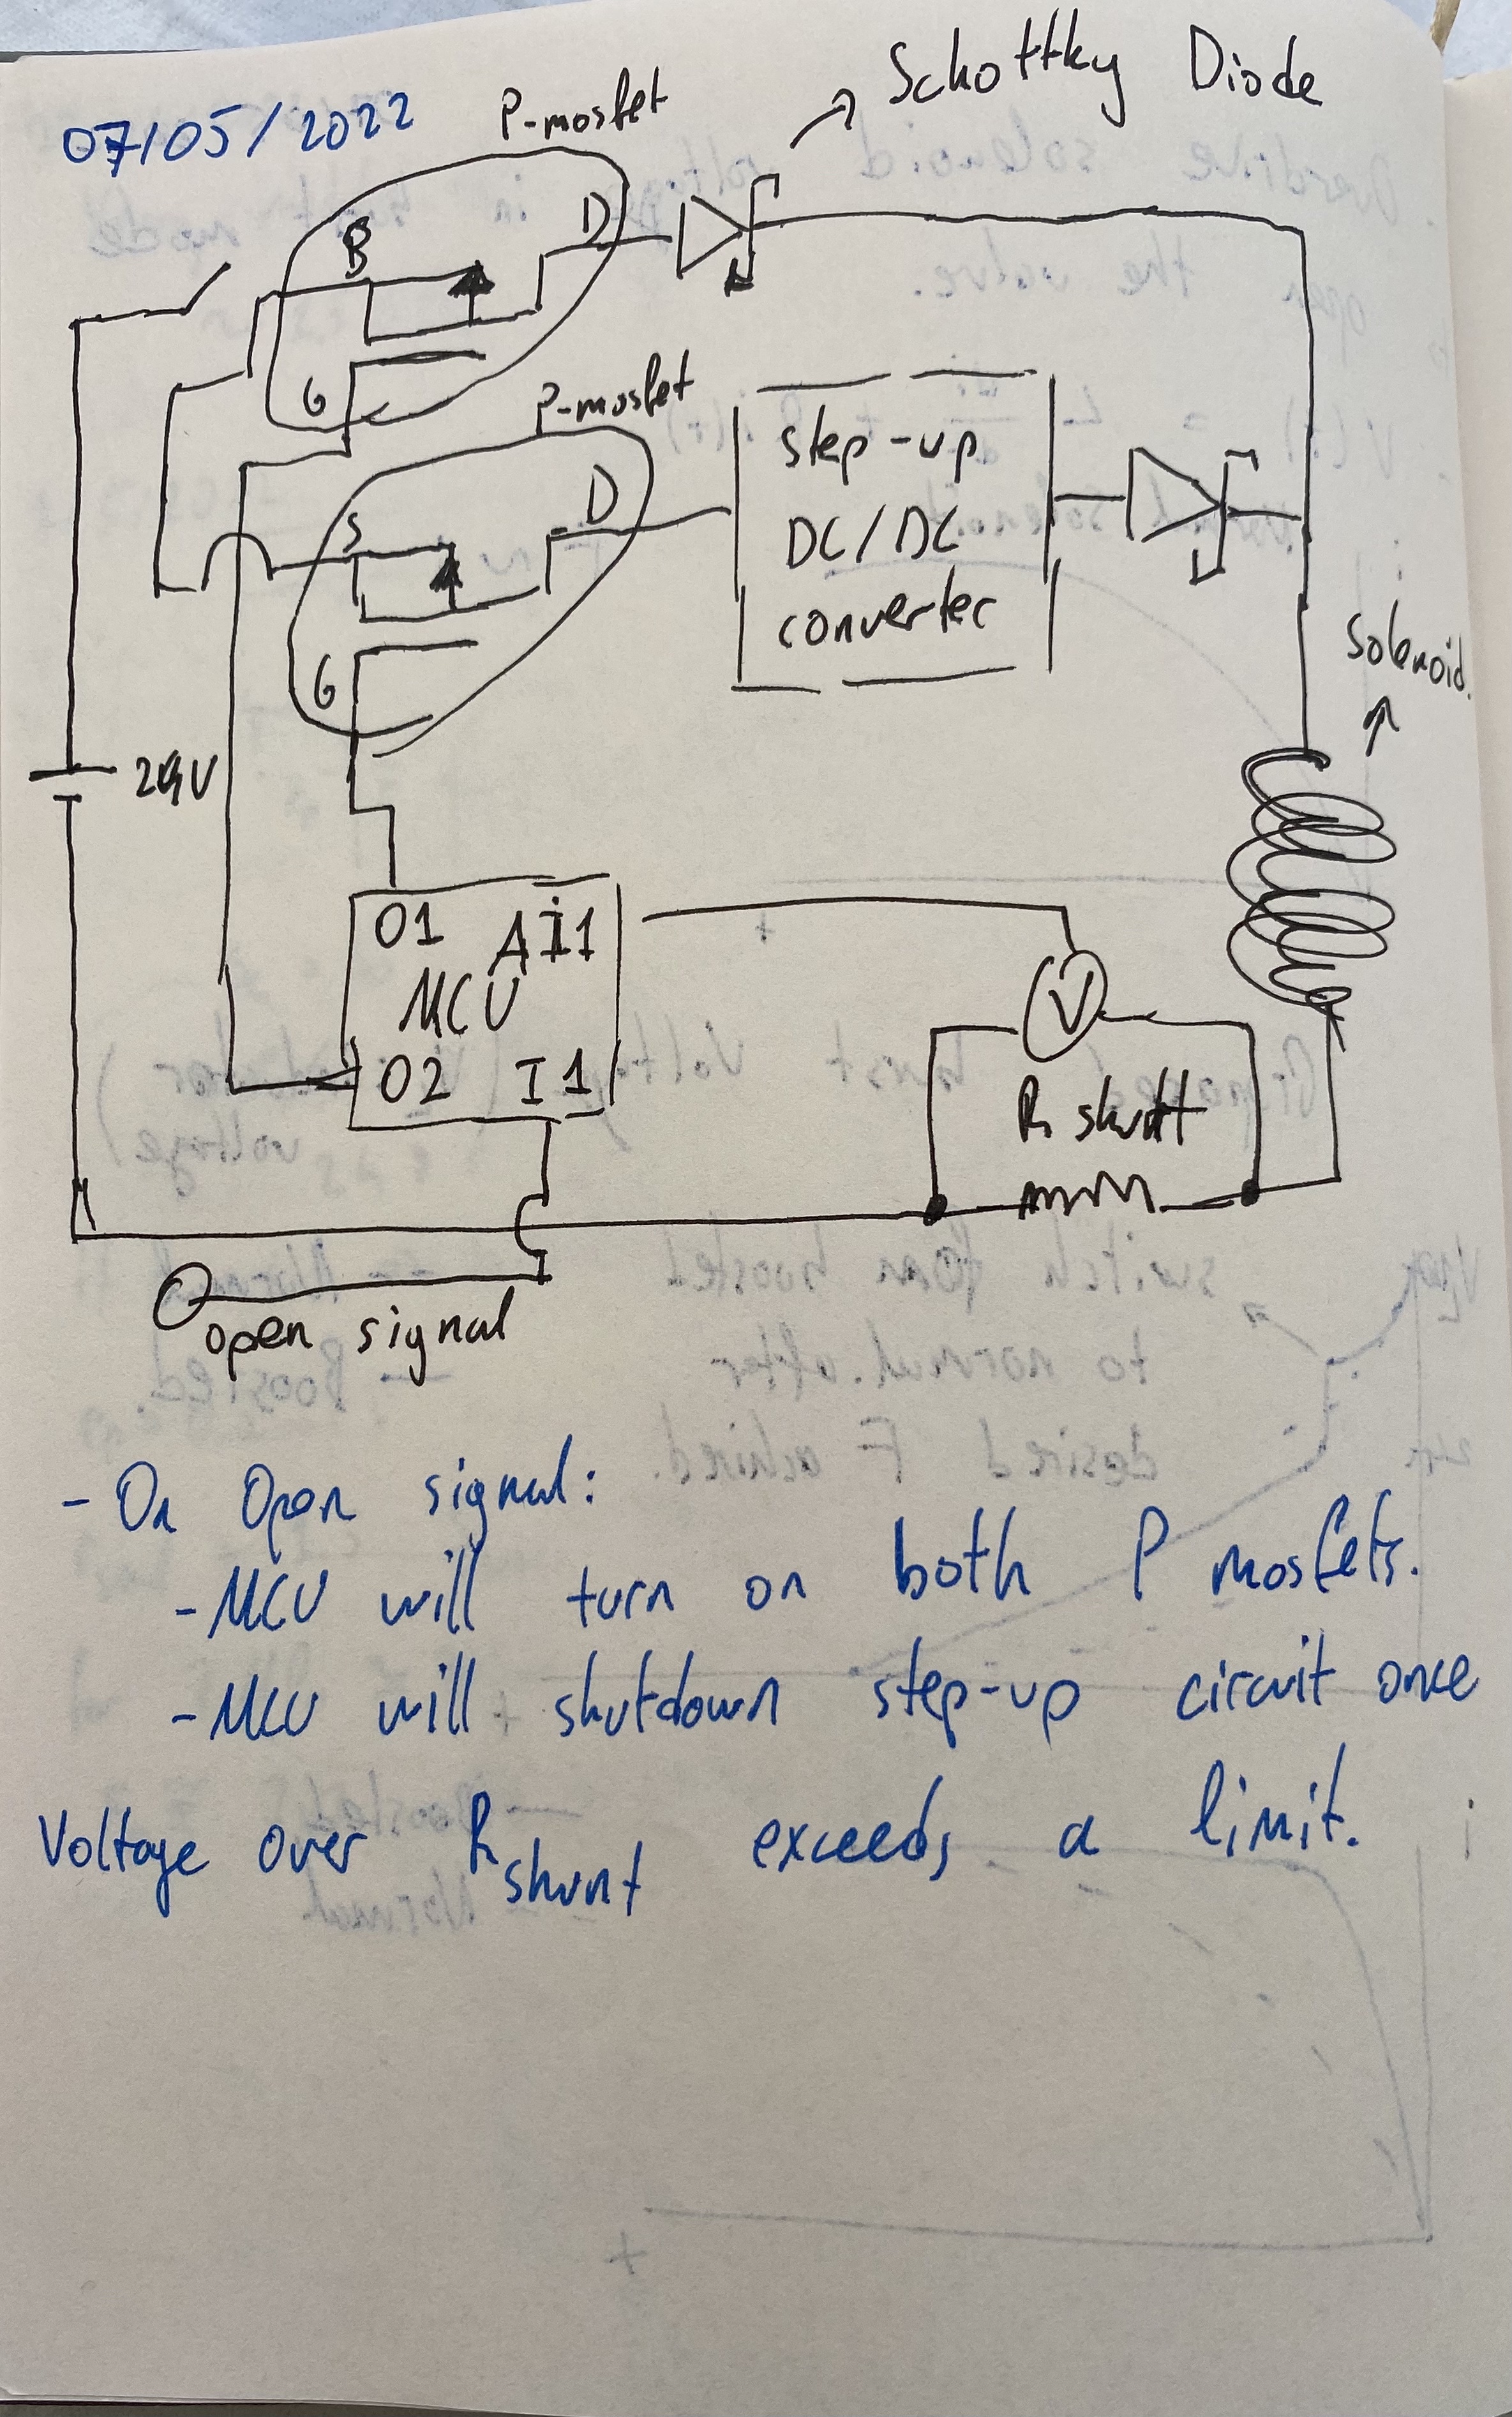 07/05/2022
P-mosfet
Schottky Diode
B
D
G
P-mosfet
S
D
G
step-up
DC/DC
converter
Solenoid.
24V
O1 AI1
MCU
O2 I1
+
V
R shunt
open signal
- On Open signal:
- MCU will turn on both P mosfets.
- MCU will shutdown step-up circuit once
Voltage over Rshunt exceeds a limit.